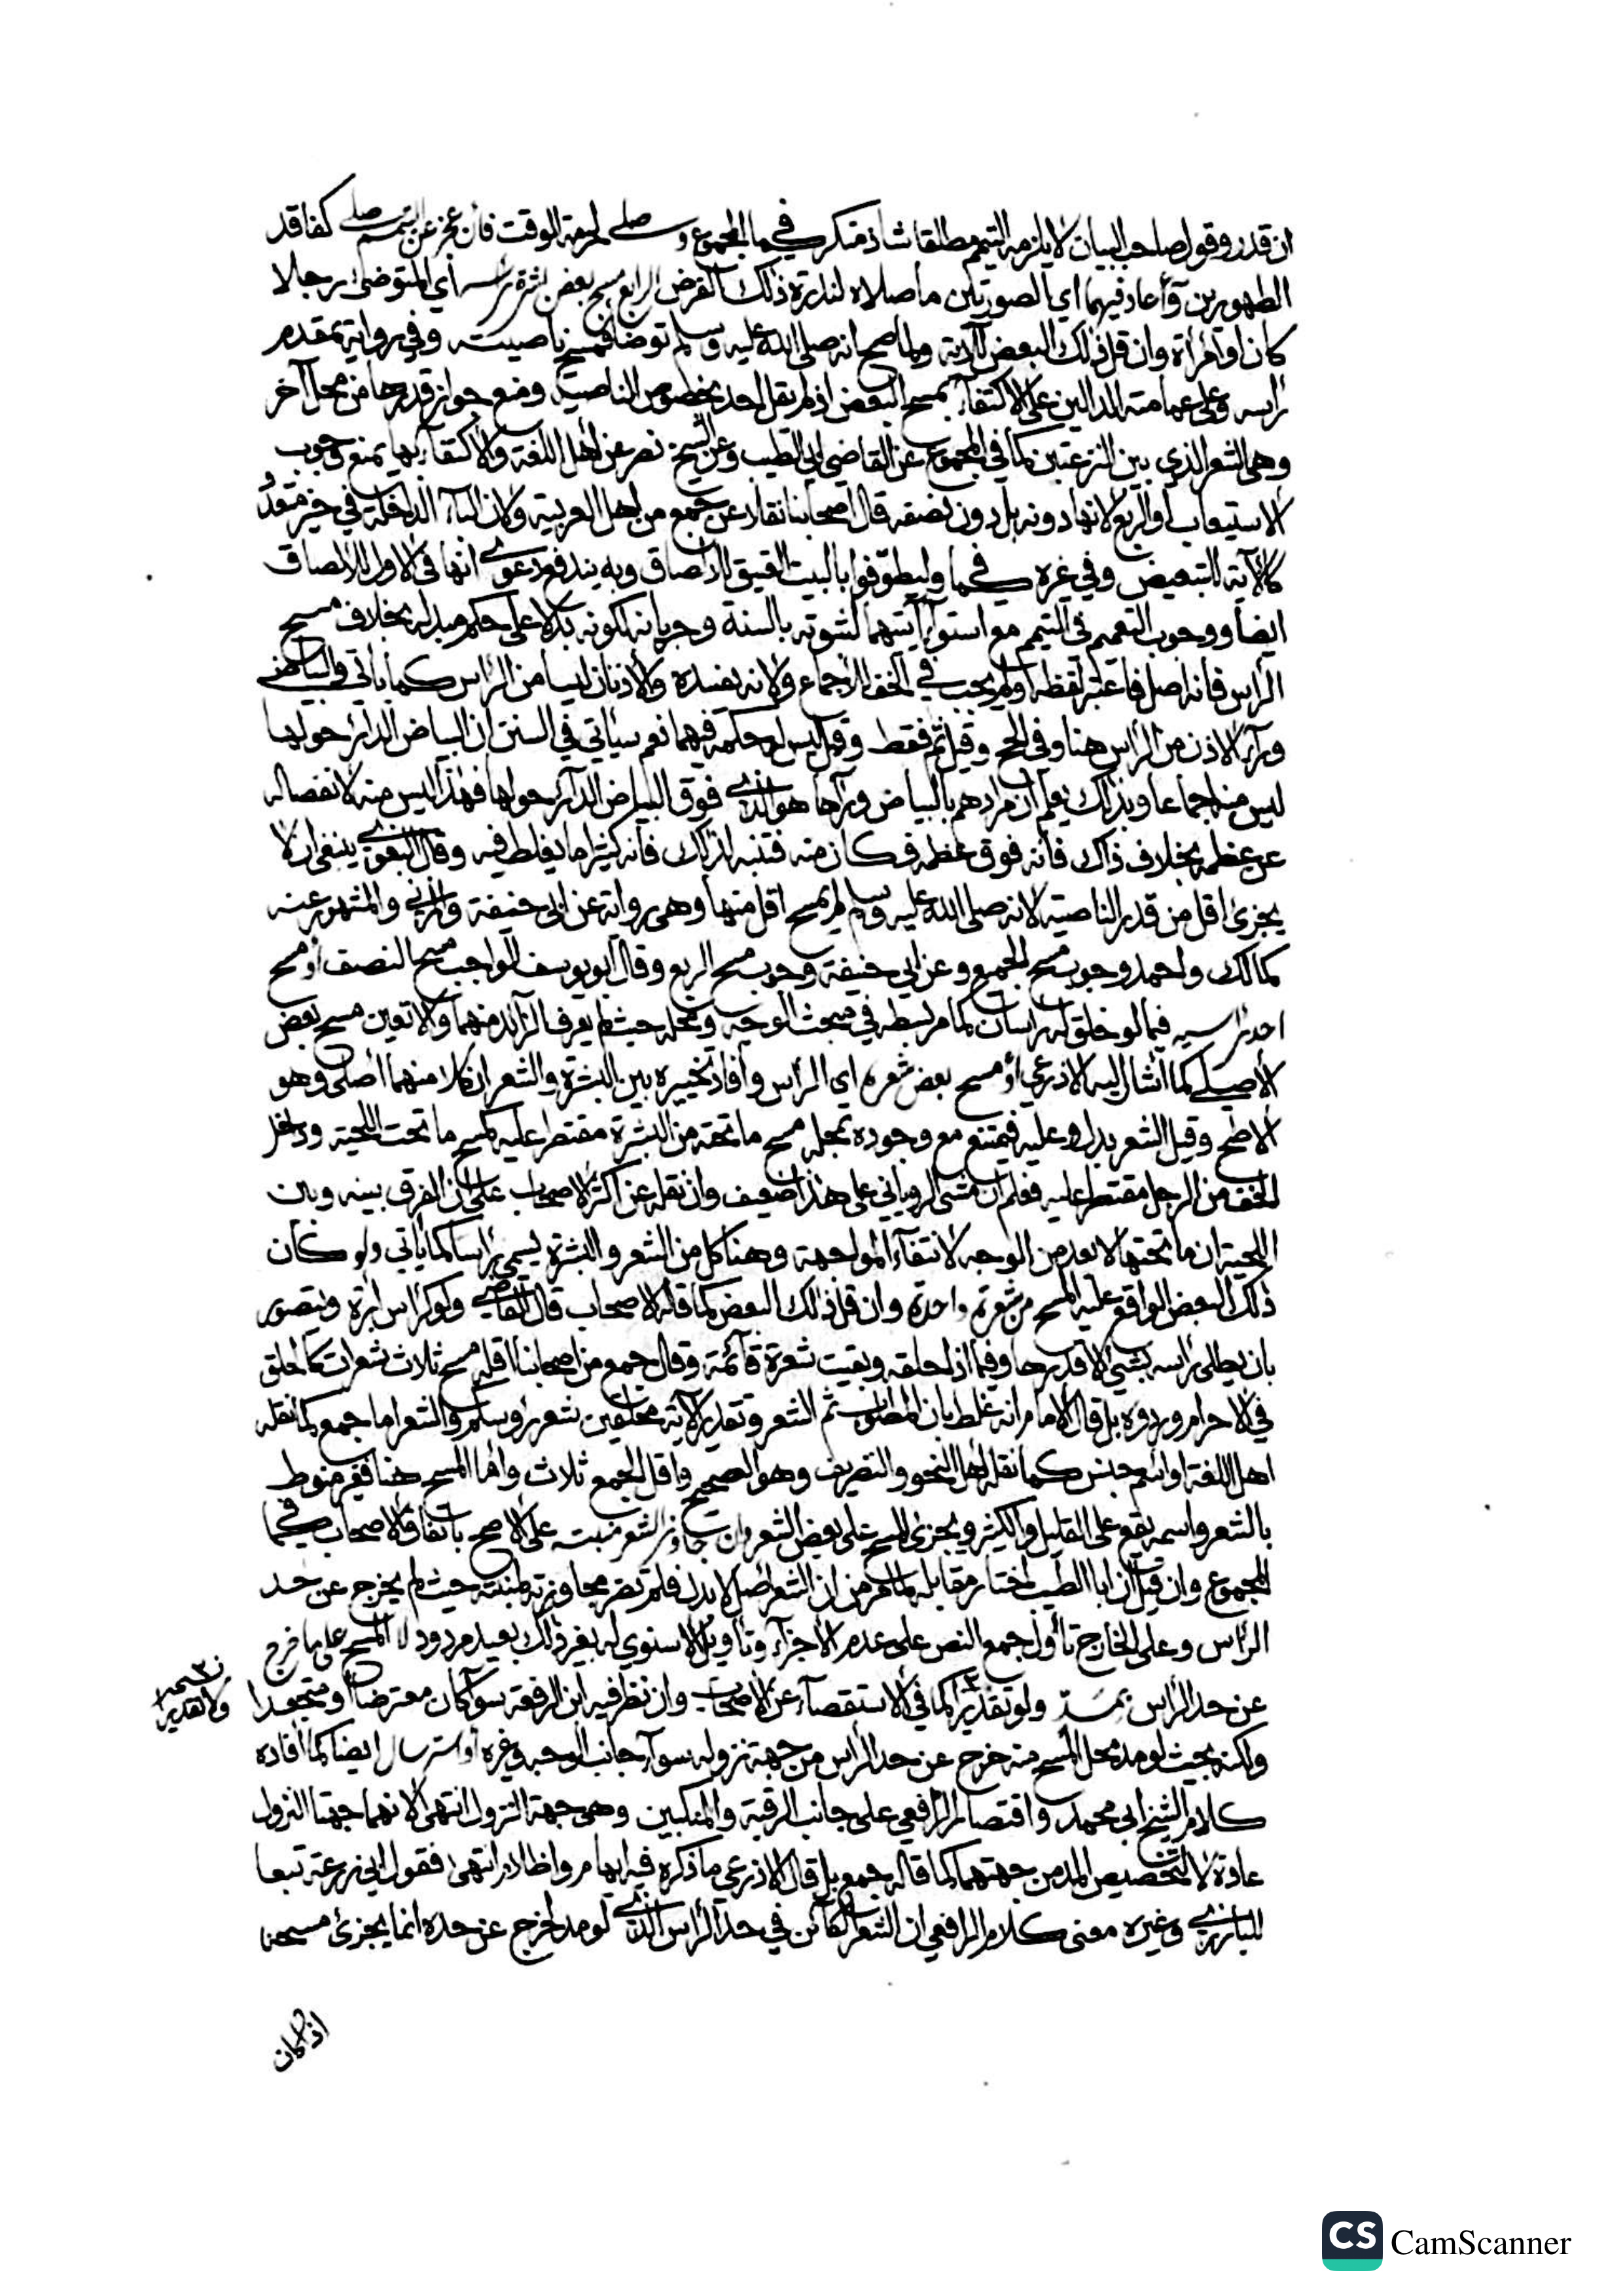 ان قدر وقول صاحب البيان لا يلزمه التيمم مطلقا شاذ منكر كما في المجموع و صلى لحرمة الوقت فان عجز عن التيمم صلى كفاقد
الطهورين و أعاد فيهما اي الصورتين ما صلاه لندرة ذلك الفرض الرابع مسح بعض بشرة رأسه اي المتوضئ رجلا
كان او امرأة وان قل ذلك البعض للآية ولما صح انه صلى الله عليه وسلم توضأ فمسح بناصيته وفي رواية بمقدم
رأسه وعلى عمامته الدالين على الاكتفاء بمسح البعض اذ لم يقل احد بخصوص الناصية ومنع جواز قدرها من محل آخر
وهي الشعر الذي بين النزعتين كما في المجموع عن القاضي ابي الطيب وعن الشيخ نصر عن اهل اللغة والاكتفاء بها يمنع وجوب
الاستيعاب او الربع لانها دونه بل دون نصفه قال اصحابنا نقلا عن جمع من اهل العربية ولان الباء الداخلة في حيز متعدد
كالآية للتبعيض وفي غيره كما في وليطوفوا بالبيت العتيق للالصاق وبه يندفع دعوى انها في الاول للالصاق
ايضا ووجوب التعميم في التيمم مع استواء آيتهما لثبوته بالسنة وجريانه لكونه بدلا على حكم مبدله بخلاف مسح
الرأس فانه اصل فاعتبر لفظه ولم يجب في الخف للاجماع ولانه يفسده والاذنان ليسا من الرأس كما يأتي والبياض
وراء الاذن من الرأس هنا وفي الحج وقيل ثم فقط وقيل ليس له حكمه فيهما نعم سيأتي في السنن ان البياض الدائر حولها
ليس منه اجماعا وبذلك يعلم ان مرادهم بالبياض وراءها هو الذي فوق البياض الدائر حولها فهذا ليس منه لانفصاله
عن عظمه بخلاف ذاك فانه فوق عظمه فكان منه فتنبه لذلك فانه كثيرا ما يغلط فيه وقال البغوي ينبغي ان لا
يجزئ اقل من قدر الناصية لانه صلى الله عليه وسلم لم يمسح اقل منها وهي رواية عن ابي حنيفة والمزني والمشهور عنه
كمالك واحمد وجوب مسح الجميع وعن ابي حنيفة وجوب مسح الربع وقال ابو يوسف الواجب مسح النصف أو مسح
احد رأسيه فيما لو خلق له رأسان كما مر بسطه في مبحث الوجه ومحله حيث لم يعرف الزائد منهما والا تعين مسح بعض
الأصلي كما أشار اليه الاذرعي أو مسح بعض شعره اي الرأس وأفاد تخييره بين البشرة والشعر ان كلا منهما أصلي وهو
الاصح وقيل الشعر بدل وعليه فيمتنع مع وجوده بمحله مسح ما تحته من البشرة مقتصرا عليه كمسح ما تحت اللحية وداخل
الخف من الرجل مقتصرا عليه فعلم ان مشي الروياني على هذا ضعيف وان نقله عن اكثر الاصحاب على ان الفرق بينه وبين
اللحية ان ما تحتها لا يعد من الوجه لانتفاء المواجهة وهنا كل من الشعر والبشرة يسمى رأسا كما يأتي ولو كان
ذلك البعض الواقع عليه المسح من شعرة واحدة وان قل ذلك البعض كما قاله الاصحاب قال القاضي ولو كرأس ابرة ويتصور
بان يطلي رأسه بشيء الا قدرها وفيما اذا حلقه وبقيت شعرة قائمة وقال جمع من اصحابنا اقله مسح ثلاث شعرات كالحلق
في الاحرام وردوه بل قال الامام انه غلط بان المطلوب ثم الشعر وتقدير الآية محلقين شعر رؤسكم والشعر اما جمع كما نقله
اهل اللغة او اسم جنس كما نقله اهل النحو والتصريف وهو الصحيح واقل الجمع ثلاث وأما المسح هنا فغير منوط
بالشعر واسمه يقع على القليل والكثير ويجزئ المسح على بعض الشعر وان جاوز الشعر منبته على الاصح باتفاق الاصحاب كما في
المجموع وان قيل ان ابا الطيب اختار مقابله لما مر من ان الشعر اصل لا بدل فلم تضر مجاوزته منبته حيث لم يخرج عن حد
الرأس وعلى الخارج تأول جمع النص على عدم الاجزاء وتأويل الاسنوي له بغير ذلك بعيد مردود لا المسح على ما خرج
عن حد الرأس بمده ولو تقديرا كما في الاستقصاء عن الاصحاب وان نظر فيه ابن الرفعة سواء كان معترضا او متجعدا
ولكنه بحيث لو مد محل المسح منه خرج عن حد الرأس من جهة نزوله سواء جانب الوجه وغيره أو استرسال ايضا كما أفاده
كلام الشيخ ابي محمد واقتصار الرافعي على جانب الرقبة والمنكبين وهي جهة النزول انتهى لانهما جهتا النزول
عادة لا لتخصيص المد من جهتهما كما قاله جمع بل قال الاذرعي ما ذكره فيه ابهام واظلام انتهى فقول ابي زرعة تبعا
للبارزي وغيره معنى كلام الرافعي ان الشعر الكائن في حد الرأس الذي لو مد لخرج عن حده انما يجزئ مسحه
ولا تقدير
اذا كان
CS CamScanner